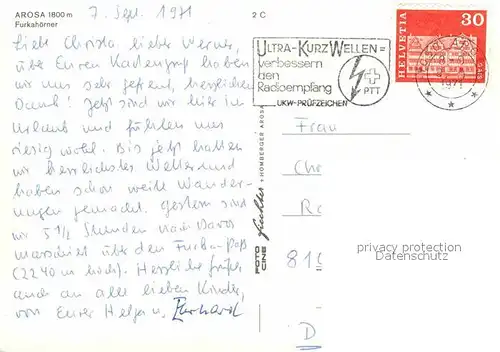 AROSA 1800 m
Furkahörner
2 C
7. Sept. 1971
Liebe Christa, lieber Werner,
über Euren Kartengruß haben
wir uns sehr gefreut, herzlichen
Dank! Jetzt sind wir hier in
Urlaub und fühlen uns
riesig wohl. Bis jetzt hatten
wir herrlichstes Wetter und
haben schon weite Wander-
ungen gemacht. Gestern sind
wir 5 1/2 Stunden nach Davos
marschiert über den Furka-Paß
(2240 m hoch). Herzliche Grüße
auch an alle lieben Kinder,
von Eurer Helga u. Gerhard
ULTRA-KURZWELLEN=
verbessern
den
Radioempfang
PTT
UKW-PRÜFZEICHEN
HELVETIA
30
1971
FOTO
CINE
+ HOMBERGER AROSA
Frau
Chr
Ra
81
D
privacy protection
Datenschutz